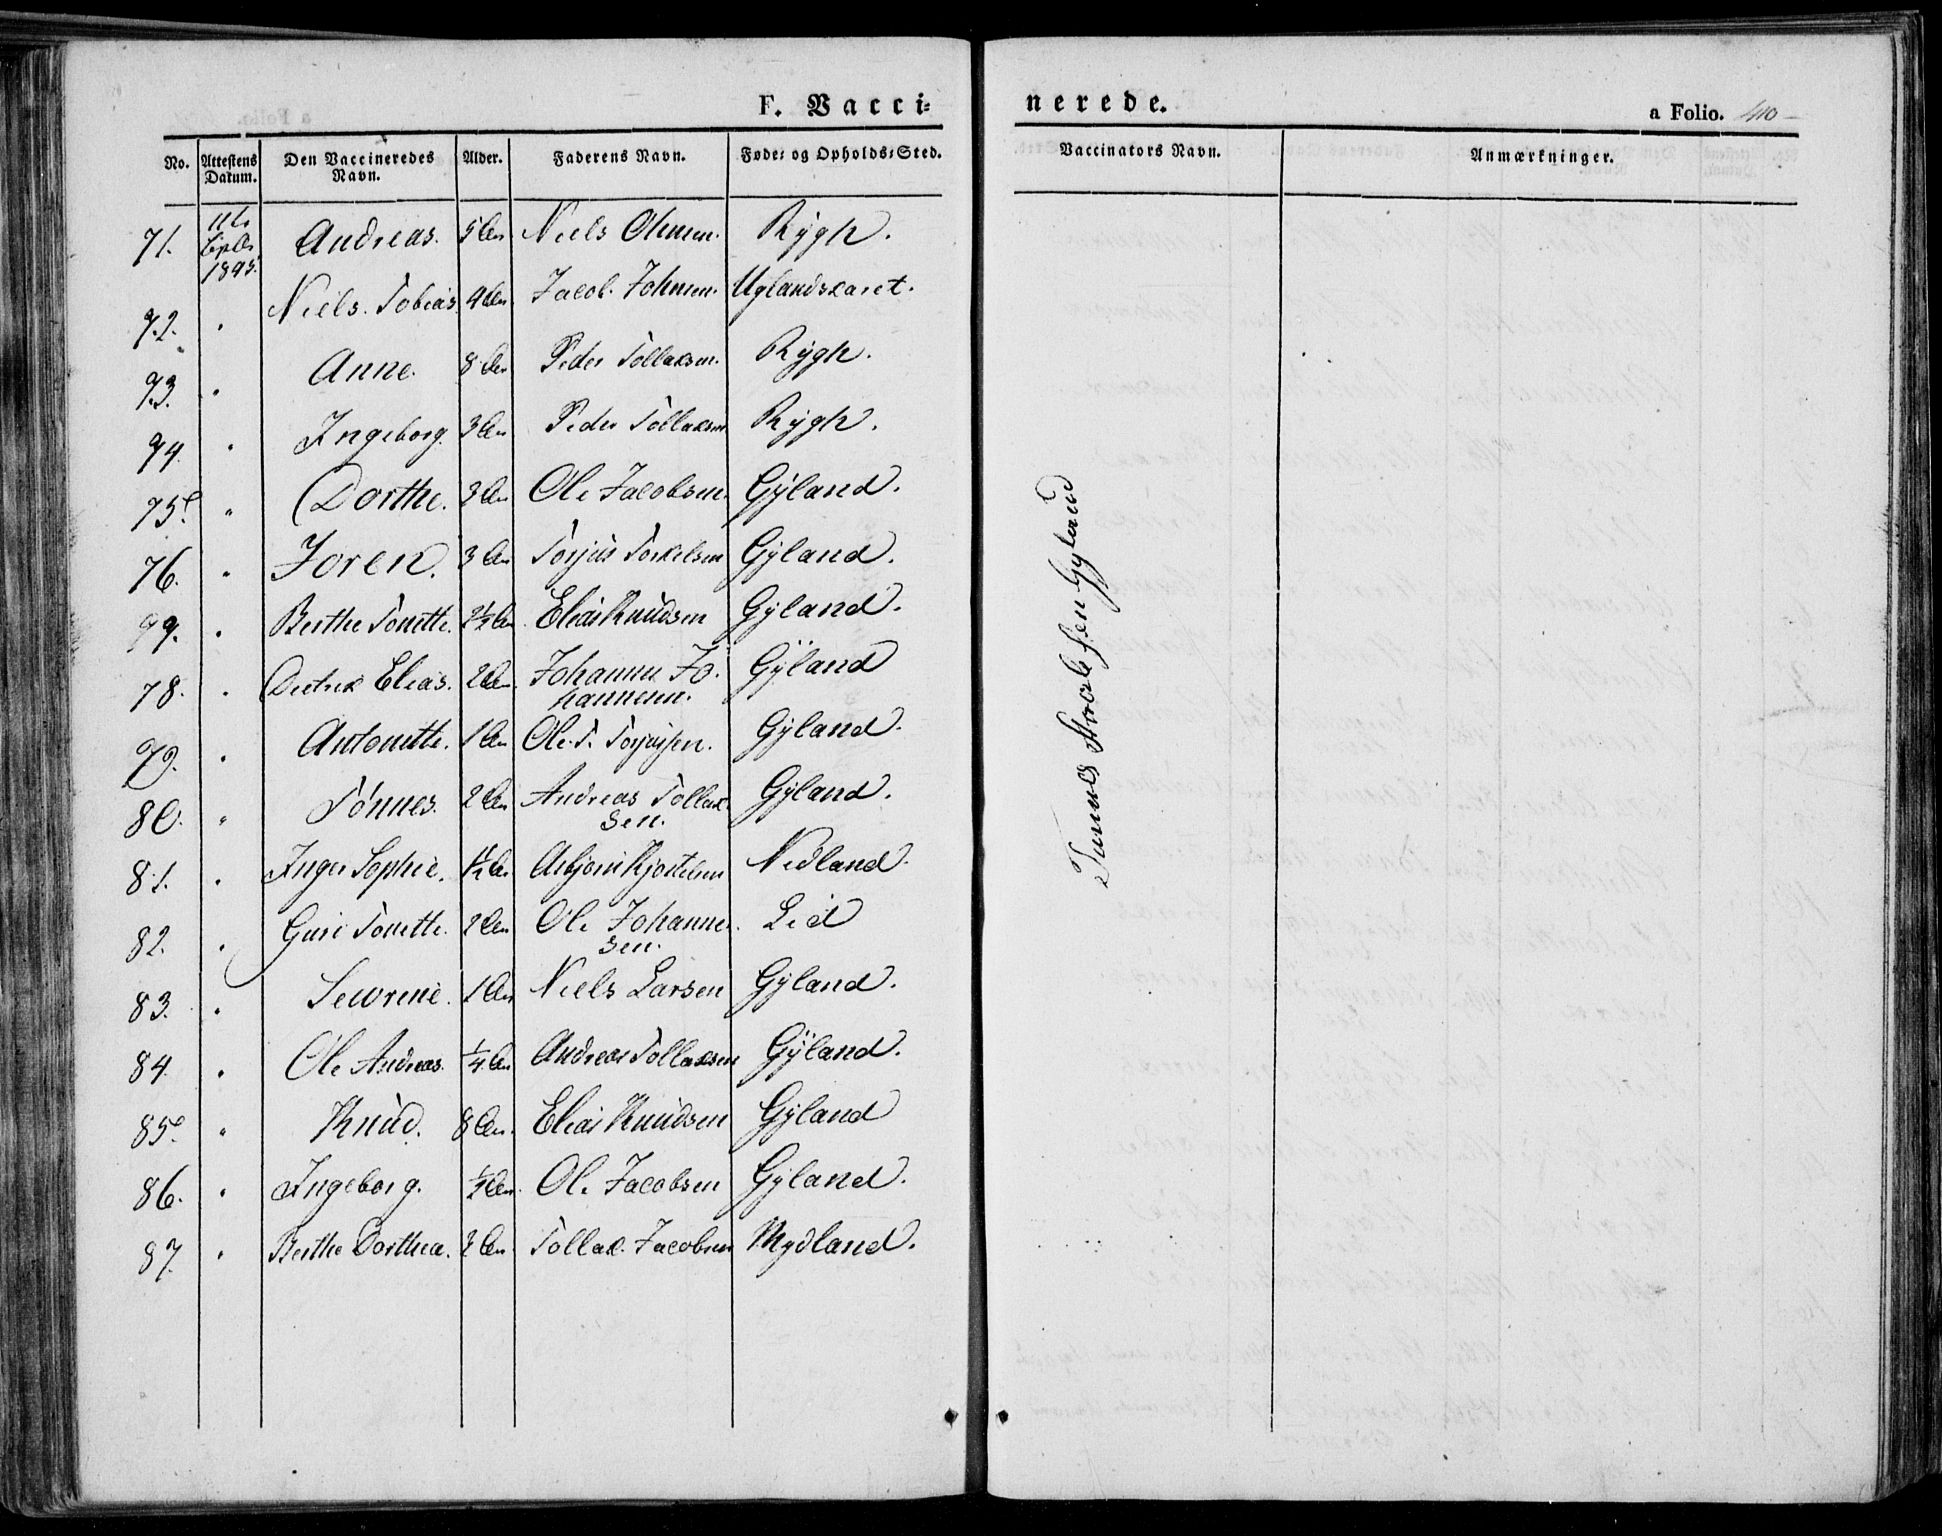 F. Vacci=
nerede.
a Folio. 410
No. Attestens Datum. Den Vaccineredes Navn. Alder. Faderens Navn. Føde= og Opholds=Sted. Vaccinators Navn. Anmærkninger.
71. 11te 1845 Andreas. 5 Aar Niels Olsen. Rygh.
72. " Niels Tobias. Jacob Johnsen. Uglandskaret.
73. " Anne. 8 Aar Peder Tollaksen. Rygh.
74. " Ingeborg. 3 Aar Peder Tollaksen Rygh.
75. " Dorthe. 3 Aar Ole Jacobsen. Gyland.
76. " Joren. 3 Aar Torjus Torkelsen Gyland.
77. " Berthe Tonette. 2½ Aar Elias Knudsen Gyland.
78. " Diedrik Elias. 2 Aar Johannes Johannesen. Gyland
79. " Antonette. 1 Aar Ole T. Torjussen. Gyland.
80. " Tønnes. 2 Aar Andreas Tollaksen. Gyland.
81. " Inger Sophie. Asbjørn Kjostelsen Nedland.
82. " Guri Tonette. 2 Aar Ole Johannesen. Lid
83. " Sewrine. 1 Aar Niels Larsen Gyland.
84. " Ole Andreas. ¼ Aar Andreas Tollaksen Gyland.
85. " Knud. 8 Aar. Elias Knudsen Gyland
86. " Ingeborg. Ole Jacobsen Gyland.
87. " Berthe Dorthea. Tollak Jacobsen Mydland.
Tønnes Gyland